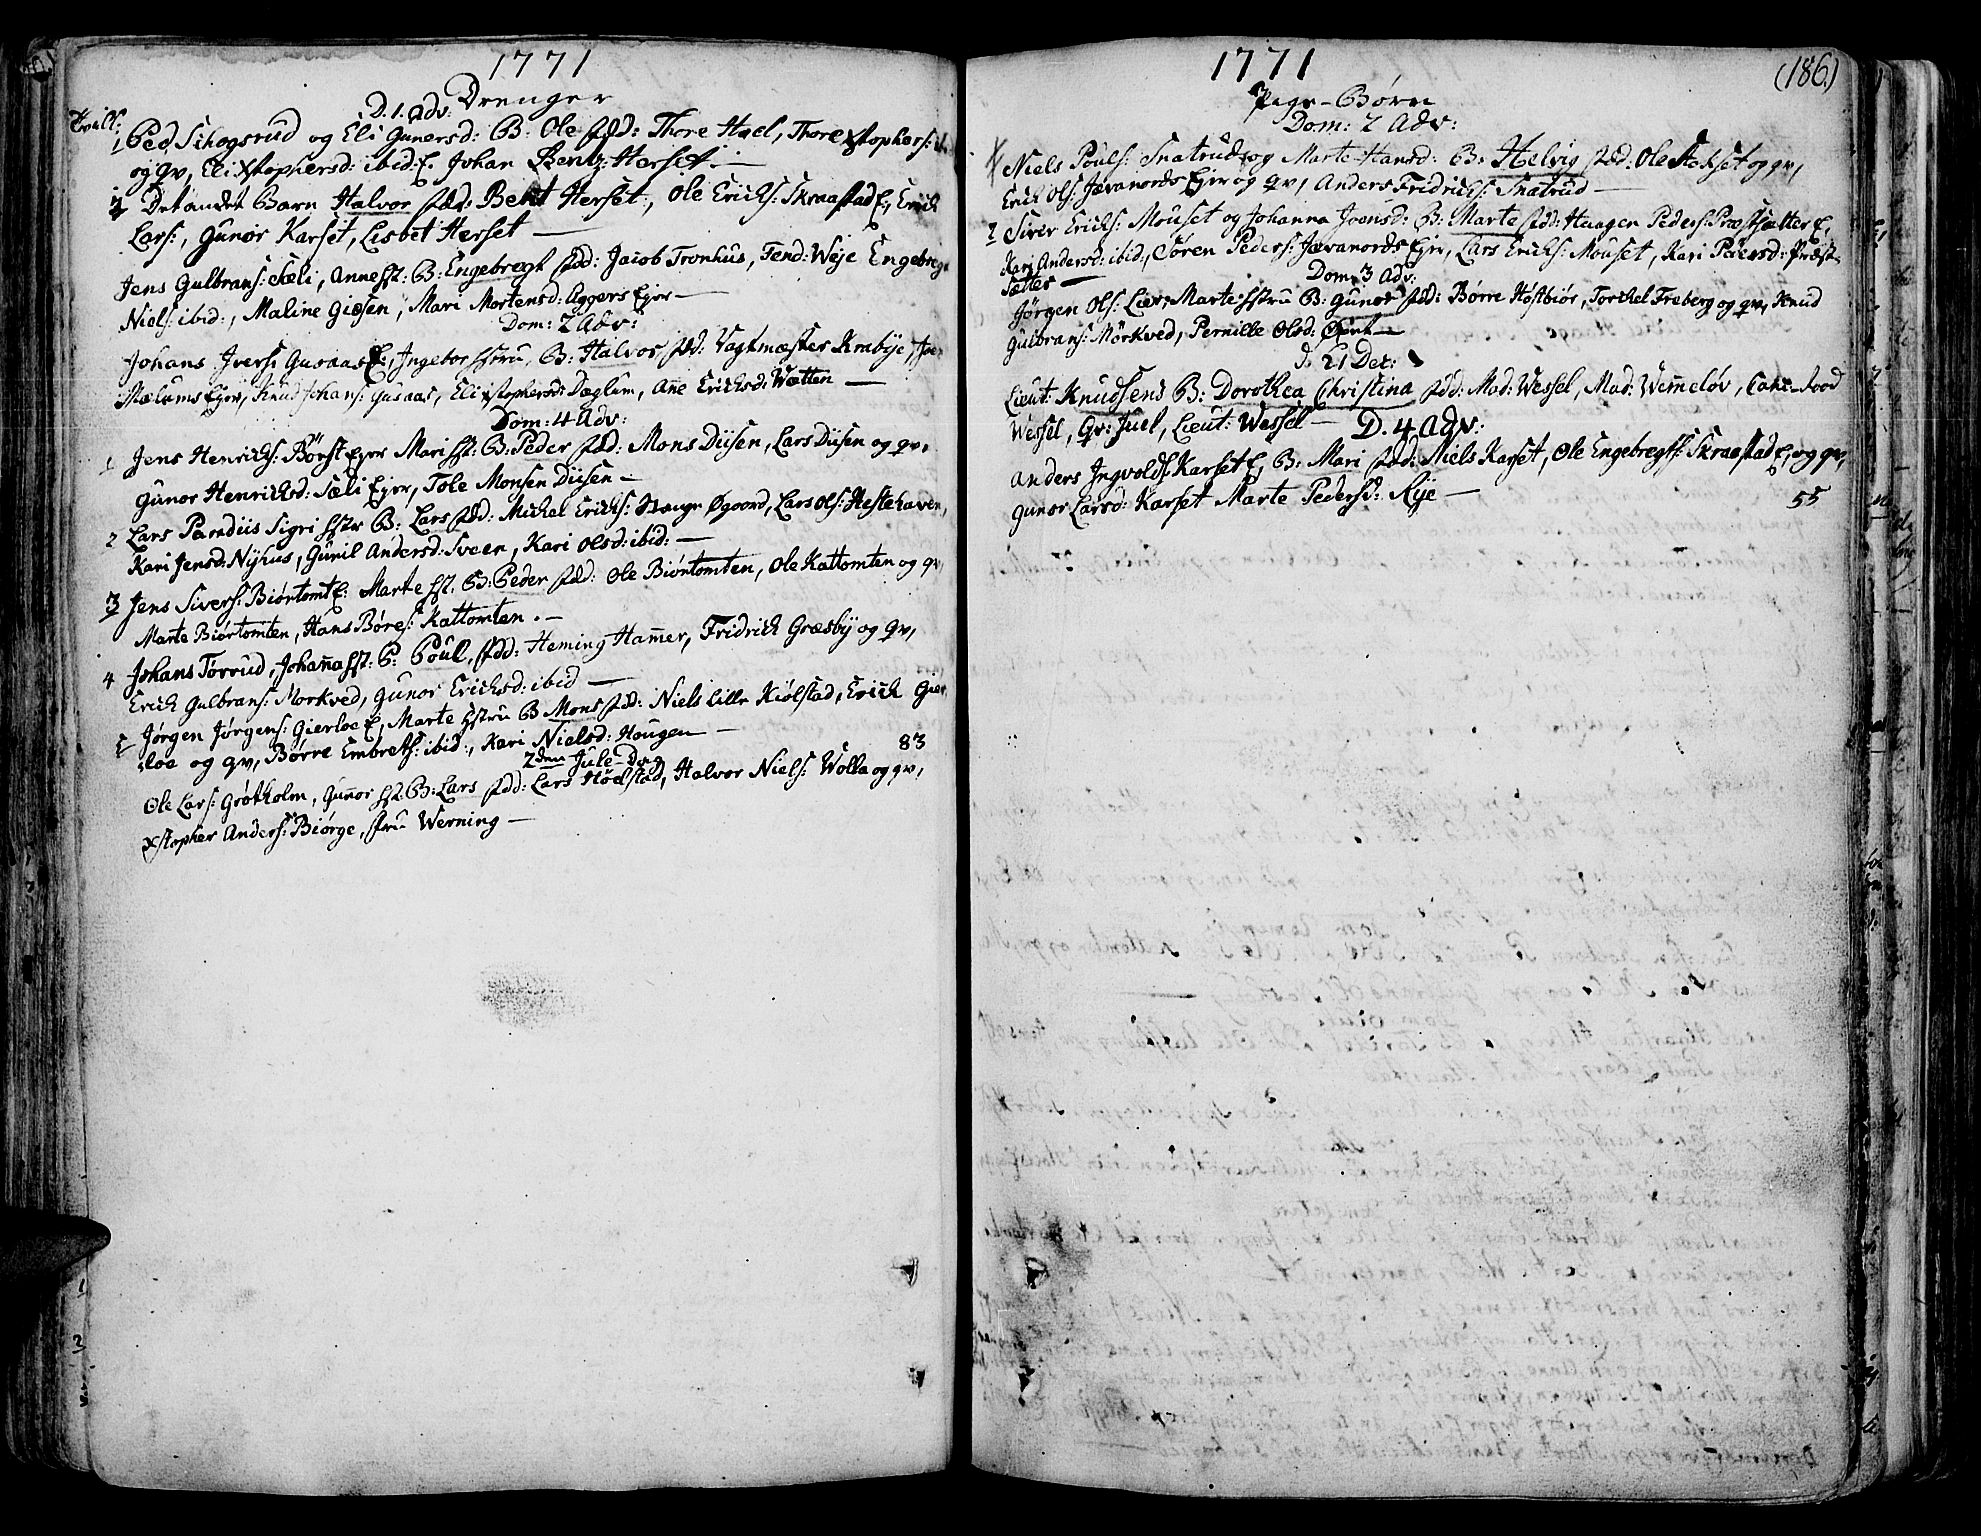 1771
Drenger
D. 1. Adv:
Tvill:
1 Ped, Schogsrud og Eli Gunersd: B: Ole fdd: Thore Huel, Thore Xstophers:
og qv, Eli Xstophersd: ibid: E. Johan Bentz: Herset. —
2 Det andet Barn Halvor fdd: Bent Herset, Ole Erichs: Skraastad E, Erich
Lars:, Gunor Karset, Lisbet Herset —
Jens Gulbrans: Skeli, Anne Hst: B: Engebregt fdd: Jacob Tronhus, Fend: Weje Engebregt
Niels: ibid:, Maline Giæsen, Mari Mortensd: Aggers Ejer —
Dom: 2 Adv:
Johans Ivers: Gusaas E:, Ingebor Hstru, B: Halvor fdd: Vagtmæster Krabye,
Mælums Ejer, Knud Johans: Gusaas, Eli Xstophersd: Dæglum, Ane Erichsd: Wætten —
Dom: 4 Adv:
1 Jens Henrichs: Børst Ejer Mari Hst: B: Peder fdd: Mons Diisen, Lars Diisen og qv,
Gunor Henrichsd: Sæli Ejer, Tole Monsen Diisen —
2 Lars Paradiis Sigri Hstr B: Lars fdd: Michel Erichs: Hougn Øgoord, Lars Ols: Hestehaven,
Kari Jensd: Nyhus, Gunil Andersd: Sveen, Kari Olsd: ibid: —
3 Jens Sivers: Biørtomt E: Marte Hst. B: Peder fdd: Ole Biørtomten, Ole Kattomten og qv,
Marte Biørtomten, Hans Børes: Kattomten. —
4 Johans Tørrud, Johana Hst: B: Poul, fdd: Heming Hamer, Fridrich Græsby og qv,
Erich Gulbrans: Morkved, Gunor Erichsd: ibid —
5 Jørgen Jørgens: Gierloe E, Marte Hstru B Mons fdd: Niels Lille Kiølstad, Erich Gier
loe og qv, Børre Embrets: ibid:, Kari Nielsd: Hougen — 83
2den Jule-Dag
Ole Lars: Grøtholm, Gunor Hst: B: Lars fdd: Lars Høelstad, Halvor Niels: Wolla og qv,
Xstopher Anders: Biørge, fru Werning —
1771
(186)
Pige-Børn
Dom: 2 Adv:
1 Niels Pouls: Snatrud og Marte Hansd: B: Helvig fdd: Ole Stokset og qv,
Erich Ols: Jevanords Ejer og qv, Anders Fridrichs: Snatrud —
2 Siver Erichs: Mouset og Johanna Joensd: B: Marte fdd: Haagen Peders: Præstsætter E,
Kari Andersd: ibid:, Søren Peders: Jevanords Ejer, Lars Erichs: Mouset, Kari Pedersd: Præst
sætter —
Dom: 3 Adv:
Jørgen Ols: Lier, Marte Hstru B: Gunor fdd: Børre Høstbiør, Torchel Freberg og qv, Knud
Gulbrans: Mörkved, Pernille Olsd:
d. 21 Dec:
Lieut: Knudsens B: Dorothea Christina fdd: Mad: Wessel, Mad: Wemeløv,
Wessel, Hr: Juel, Lieut: Wessel — D. 4 Adv:
Anders Ingvolds: Karset E, B: Mari fdd: Niels Karset, Ole Engebregts: Skraastad E, og qv,
Gunor Larsd: Karset Marte Pedersd: Rye — 55